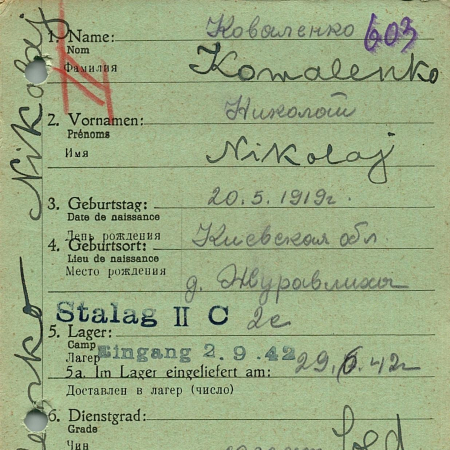 Коваленко 603
1. Name: Kowalenko
Nom
Фамилия
Николай
2. Vornamen:
Prénoms
Имя Nikolaj
3. Geburtstag: 20.5.1919г.
Date de naissance
День рождения
4. Geburtsort: Киевская обл
Lieu de naissance
Место рождения д. Журавлиха
Stalag II C 2c
5. Lager:
Camp
Лагерь Eingang 2.9.42
5a. Im Lager eingeliefert am: 29.6.42г
Доставлен в лагерь (число)
6. Dienstgrad:
Grade
Чин Sold
Nikolaj